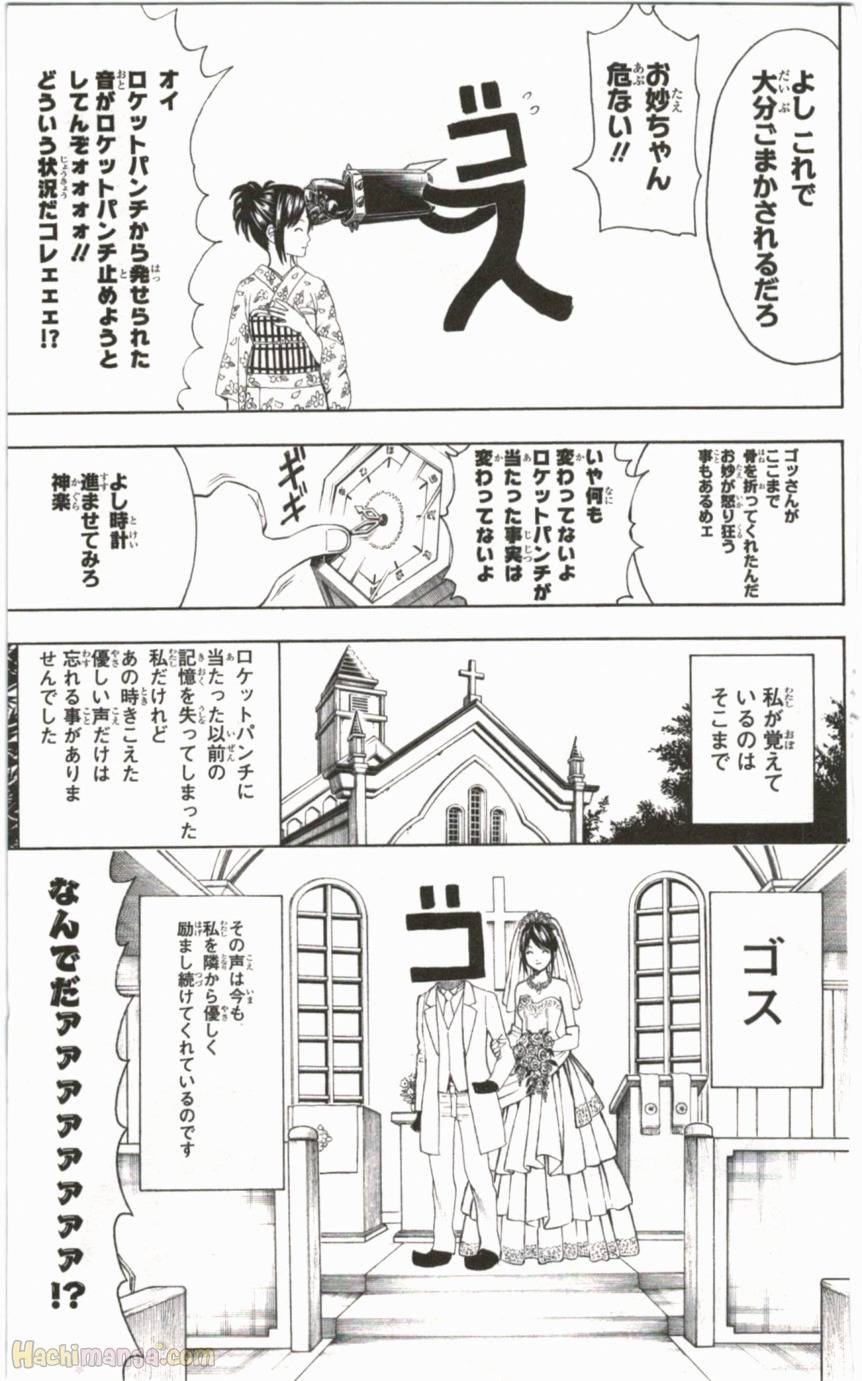 よし これで
大分ごまかされるだろ
お妙ちゃん
危ない!!
ゴス
オイ
ロケットパンチから発せられた
音がロケットパンチ止めようと
してんぞォォォォ!!
どういう状況だコレェェェ!?
ゴッさんが
ここまで
骨を折ってくれたんだ
お妙が怒り狂う
事もあるめェ
いや何も
変わってないよ
ロケットパンチが
当たった事実は
変わってないよ
ギギ
よし時計
進ませてみろ
神楽
私が覚えて
いるのは
そこまで
ロケットパンチに
当たった以前の
記憶を失ってしまった
私だけれど
あの時きこえた
優しい声だけは
忘れる事がありま
せんでした
ゴス
ゴ
その声は今も
私を隣から優しく
励まし続けてくれているのです
なんでだァァァァァァァァ!?
Hachimanga.com